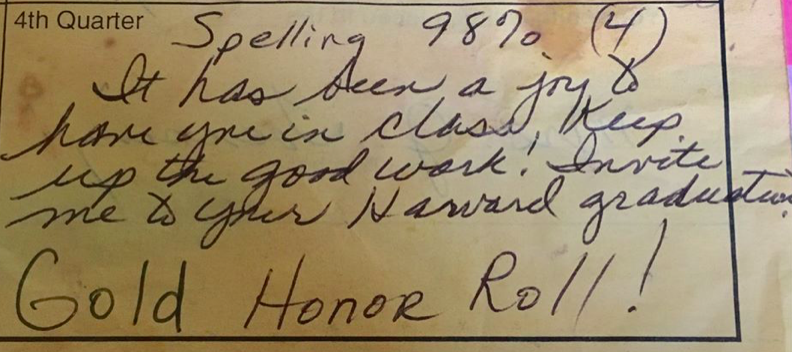 4th Quarter Spelling 98% (4)
It has been a joy to
have you in class. Keep
up the good work! Invite
me to your Harvard graduation.
Gold Honor Roll!